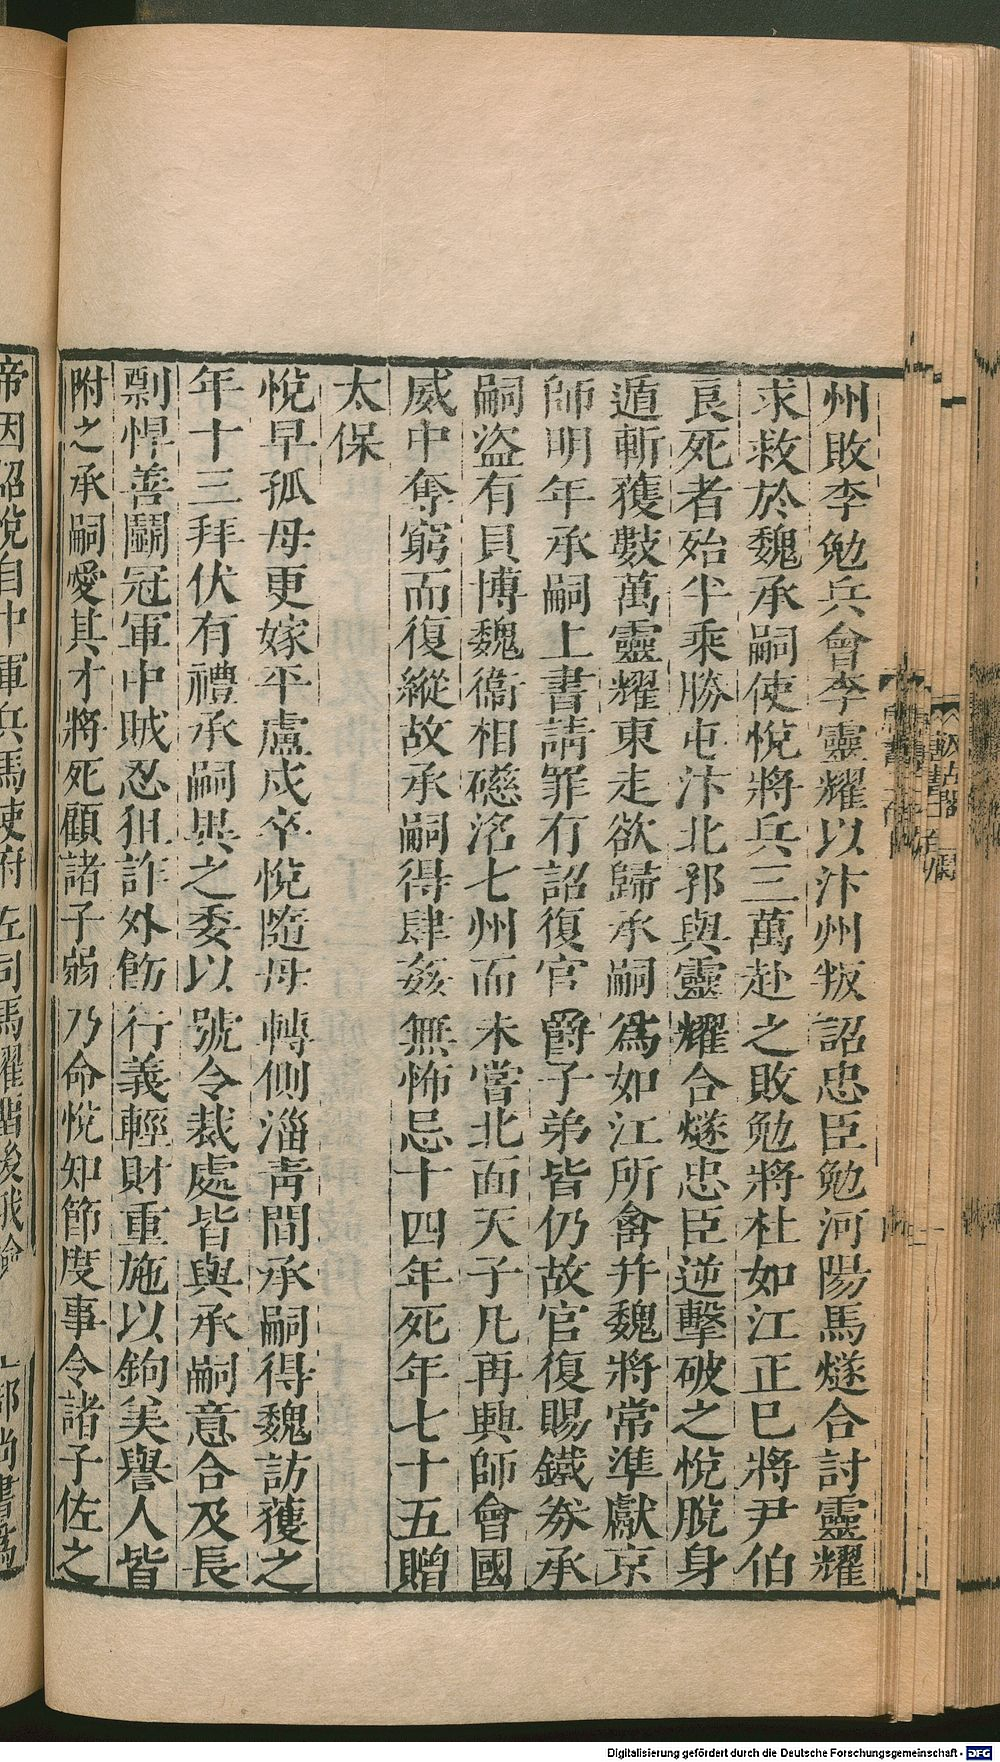 州敗李勉兵會李靈耀以汴州叛詔忠臣勉河陽馬燧合討靈耀
求救於魏承嗣使悅將兵三萬赴之敗勉將杜如江正巳將尹伯
良死者殆半乘勝屯汴北郛與靈耀合燧忠臣逆擊破之悅脫身
遁斬獲數萬靈耀東走欲歸承嗣爲如江所禽并魏將常準獻京
師明年承嗣上書請罪有詔復官爵子弟皆仍故官復賜鐵券承
嗣盜有貝博魏衞相磁洺七州而未嘗北面天子凡再興師會國
威中奪窮而復縱故承嗣得肆姦無怖忌十四年死年七十五贈
太保
悅早孤母更嫁平盧戍卒悅隨母轉側淄青間承嗣得魏訪獲之
年十三拜伏有禮承嗣異之委以號令裁處皆與承嗣意合及長
剽悍善鬭冠軍中賊忍狙詐外飭行義輕財重施以鉤美譽人皆
附之承嗣愛其才將死顧諸子弱乃命悅知節度事令諸子佐之
帝因詔悅自中軍兵馬使府左司馬擢留後俄檢
部尚書爲
Digitalisierung gefördert durch die Deutsche Forschungsgemeinschaft - DFG